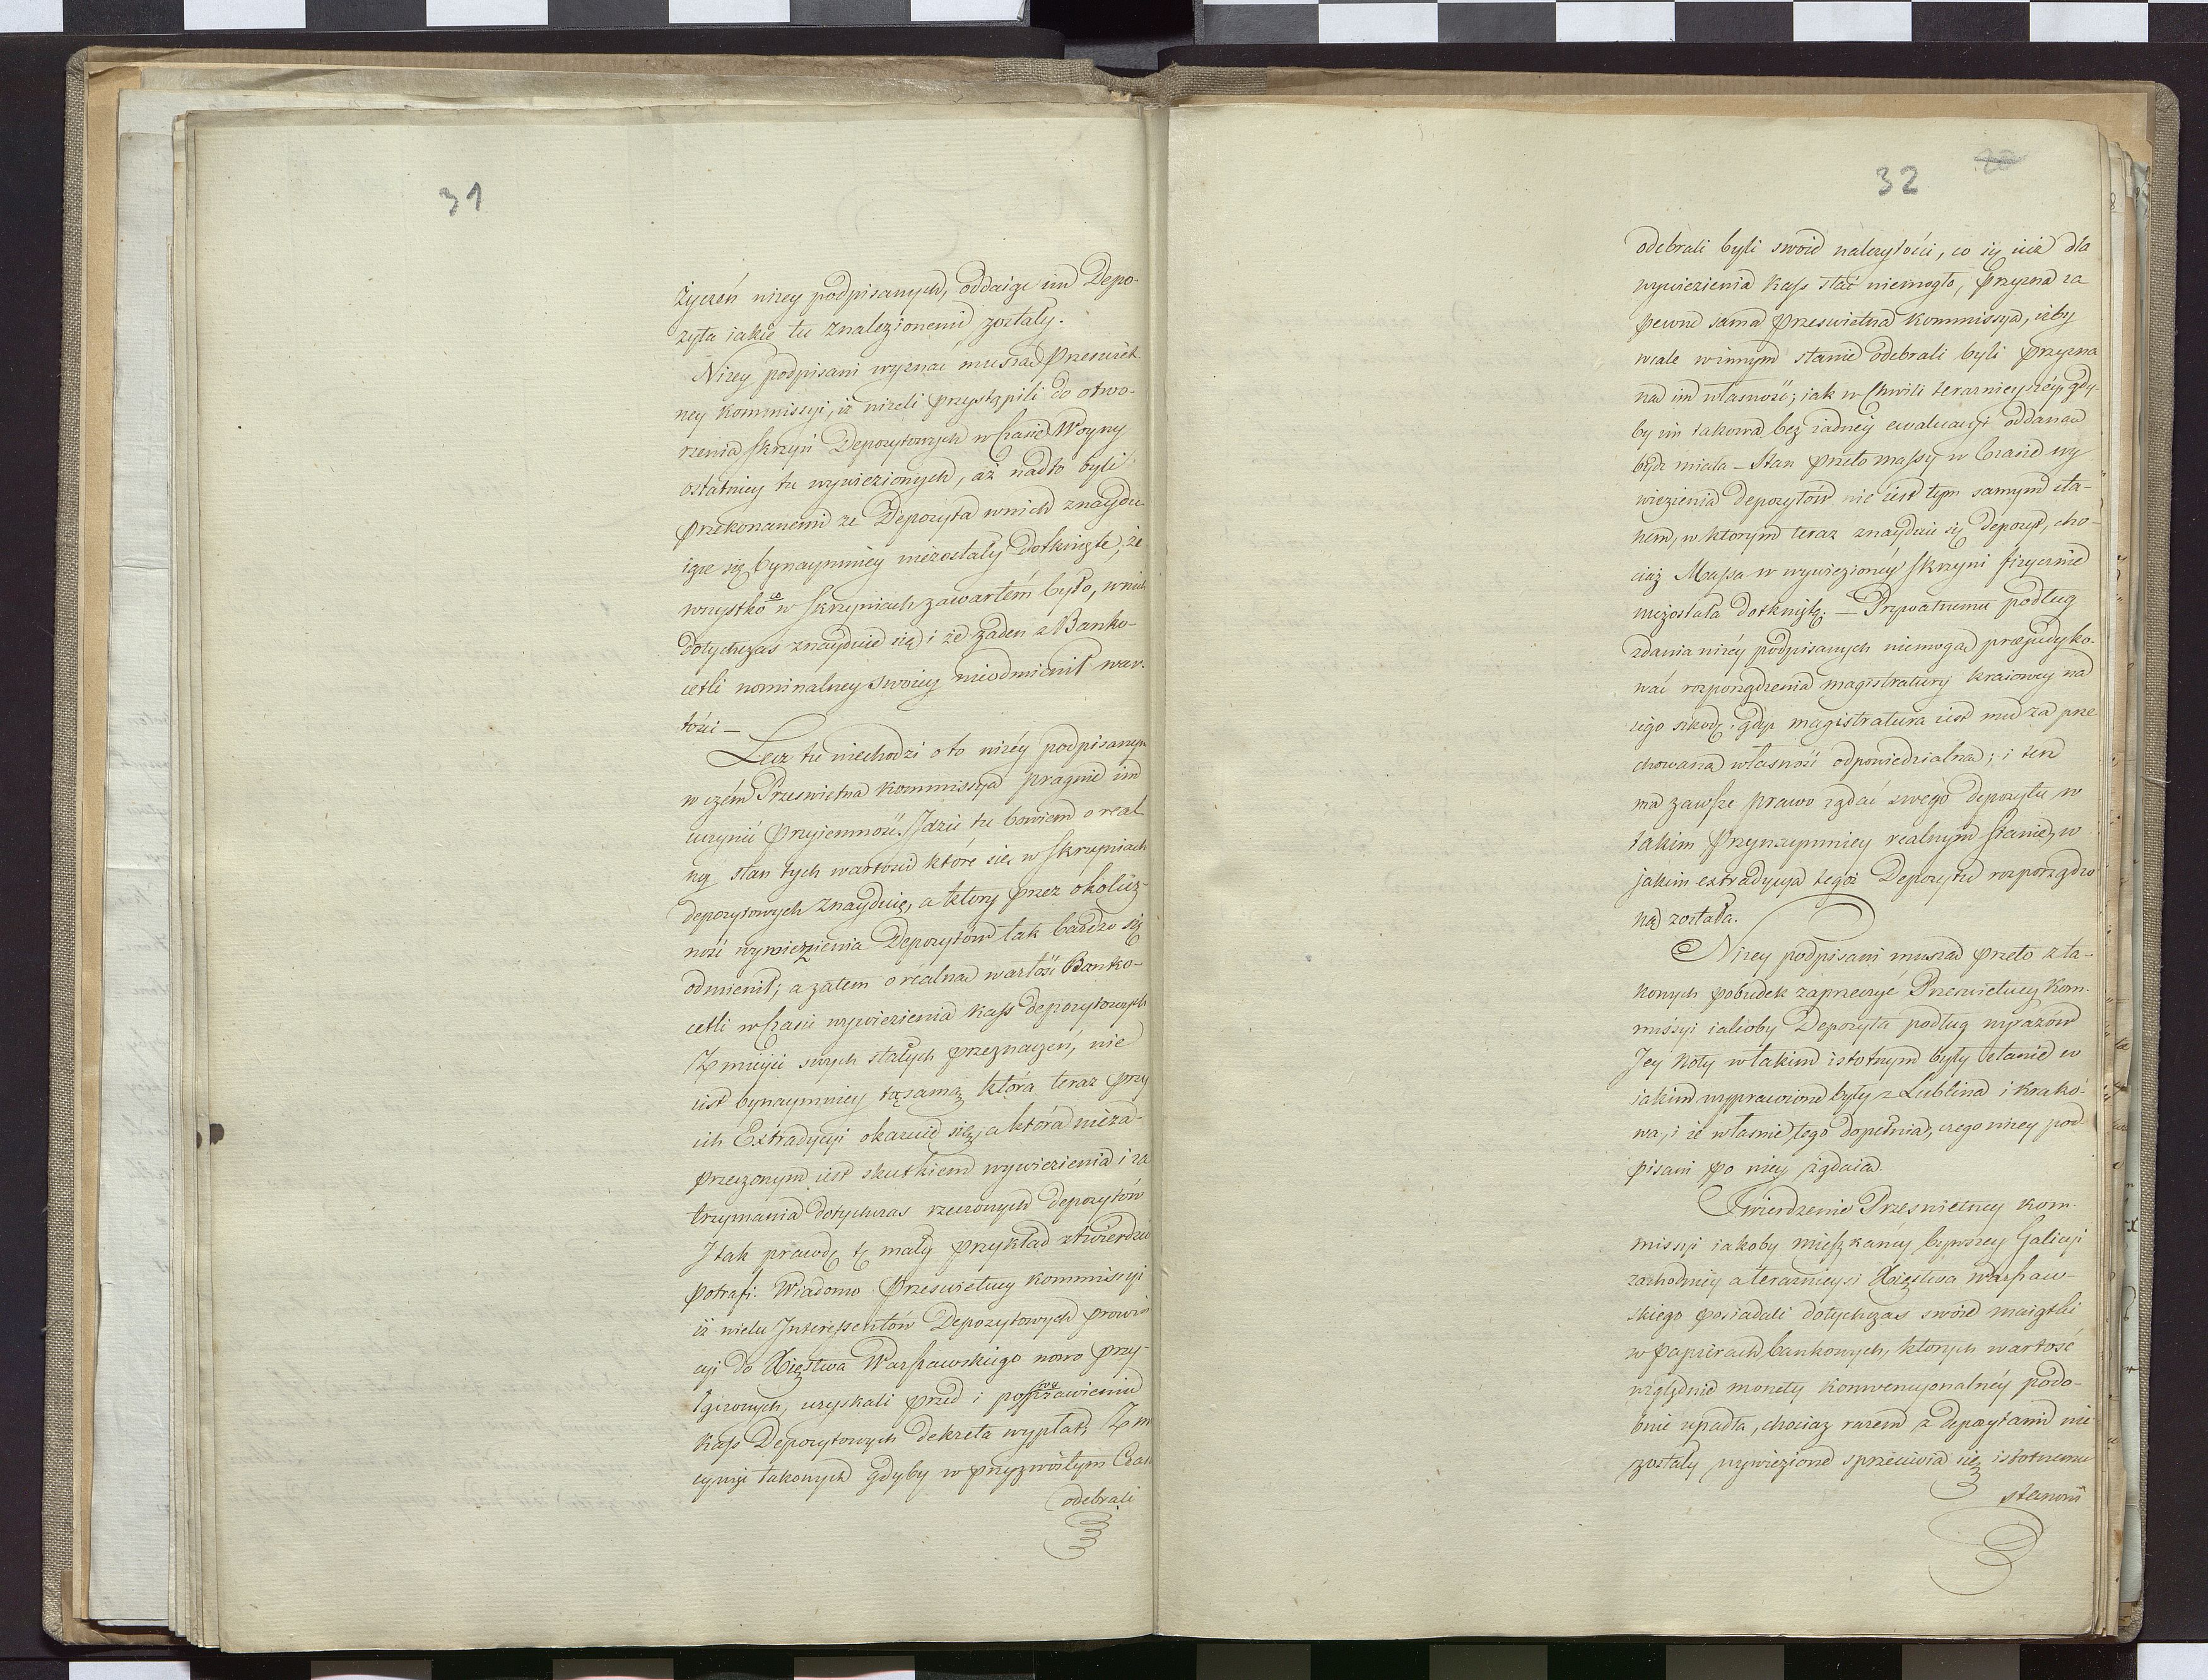 31
życzeń niżey podpisanych, oddaiąc im Depo-
zyta iakie tu znalezionemi zostały.
Niżey podpisani wyznać muszą Przeswiet
ney Kommissyi, iż niżeli przystąpili do otwo-
rzenia skrzyń Depozytowych w czasie Woyny
ostatniey tu wywiezionych, aż nadto byli
przekonanemi że Depozyta w nich znaydu
iące się bynaymniey niezostały dotknięte, że
wszystko co w skrzyniach zawartém było, w nich
dotychczas znayduie się, i że żaden z Banko-
cetli nominalney swoiey nieodmienił war-
tości —
Lecz tu niechodzi o to niżéy podpisanym
w czém Przeswietna Kommissya pragnie im
uczynić przyjemność. Idzie tu bowiem o real
ny stan tych wartości które się w skrzyniach
depozytowych znayduią, a który przez okolicz-
ność wywiezienia Depozytów tak bardzo się
odmienił; a zatem o realną wartość Banko-
cetli w czasie wywiezienia kass depozytowych
z mieysc swych stałych przeznaczeń, nie
iest bynaymniey tą samą która teraz przy
ich Extradycyi okazuie się, a która nieza-
przeczonym iest skutkiem wywiezienia i za
trzymania dotychczas rzeczonych depozytów
I tak prawdę tę mały przykład stwierdzić
potrafi. Wiadomo Przeswietney Kommissyi
iż wielu Interessentów Depozytowych prowin
cyi do Xięstwa Warszawskiego nowo przy-
łączonych, uzyskali przed i po
kass Depozytowych dekreta wypłat. Z m
takowych gdyby w przyzwoitym Czasie
odebrali
32
20
odebrali byli swoie należytości, co się iuż dla
wywiezienia kass stać niemogło, przyzna za
pewne sama Przeswietna Kommissya, iżby
wcale w innym stanie odebrali byli przyzna
ną im własność; iak w chwili teraznieyszéy, gdy-
by im takowa bez żadnéy ewaluacyi oddaną
być miała — Stan przeto massy w czasie wy
wiezienia depozytów nie iest tym samym sta-
nem, w którym teraz znayduie się depozyt, cho-
ciaż Massa w wywiezionéy skrzyni fizycznie
niezostała dotkniętą. — Prywatnemu podług
zdania niżéy podpisanych niemogą præjudyko-
wać rozporządzenia magistratury kraiowey na
iego szkodę; gdyż magistratura iest mu za prze
chowaną własność odpowiedzialna; i ten
ma zawsze prawo żądać swégo depozytu w
takim przynaymniey realnym stanie, w
jakim extradycya tegoż Depozytu rozporządzo
ną została.
Niżey podpisani muszą przeto z ta-
kowych pobudek zaprzeczyć Przeswietney Kom-
missyi iakoby Depozyta podług wyrazów
Jey Noty w takim istotnym były stanie w
iakim wyprawione były z Lublina i Krako-
wa, i że własnie tego dopełnia, czego niżey pod-
pisani po niey żądaią.
Twierdzenie Przeswietney Kom-
missyi iakoby mieszkańcy bywszey Galicyi
zachodniey a teraznieysi Xięstwa Warszaw-
skiego posiadali dotychczas swóie maiątki
w papierach bankowych, których wartość
względnie monety konwencyonalnéy podo-
bnie upadła, chociaż razem z depozytami nie
zostały wywiezione sprzeciwia się istotnemu
stanowi